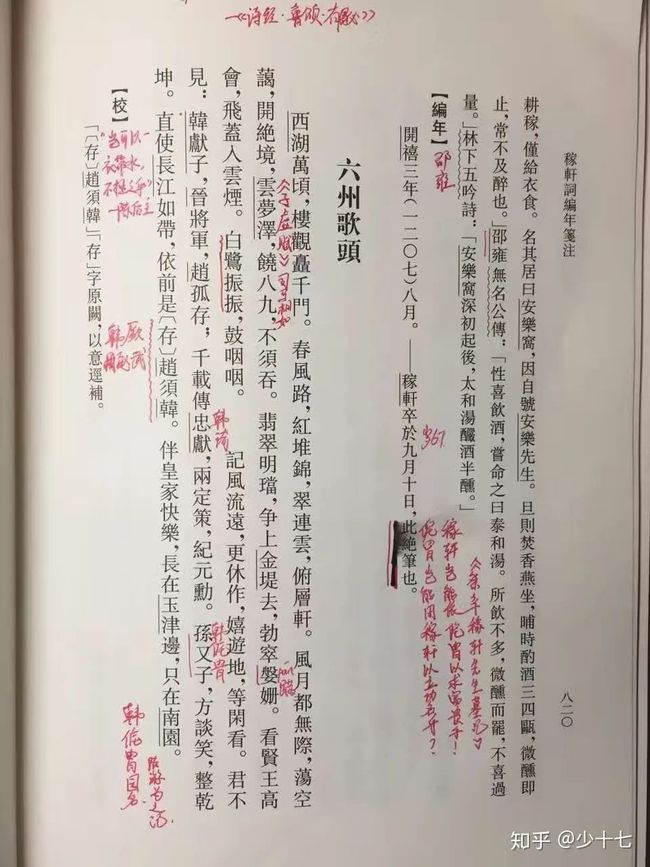 《诗经·鲁颂·有駜》
稼軒詞編年箋注
八二〇
耕稼,僅給衣食。名其居曰安樂窩,因自號安樂先生。旦則焚香燕坐,晡時酌酒三四甌,微醺即
止,常不及醉也。」邵雍無名公傳:「性喜飲酒,嘗命之曰泰和湯。所飲不多,微醺而罷,不喜過
量。」林下五吟詩:「安樂窩深初起後,太和湯釅酒半醺。」
【編年】
邵雍
開禧三年(一二〇七)八月。——稼軒卒於九月十日,此絕筆也。
侂胄岂能用稼轩以立功名乎?
六州歌頭
西湖萬頃,樓觀矗千門。春風路,紅堆錦,翠連雲,俯層軒。風月都無際,蕩空
藹,開絕境,雲夢澤,饒八九,不須吞。翡翠明璫,争上金堤去,勃窣媻姍。看賢王高
《子虚赋》司马相如
會,飛蓋入雲煙。白鷺振振,鼓咽咽。 記風流遠,更休作,嬉遊地,等閑看。君不
見:韓獻子,晉將軍,趙孤存;千載傳忠獻,兩定策,紀元勳。孫又子,方談笑,整乾
韩琦
韩侂胄
坤。直使長江如帶,依前是〔存〕趙須韓。伴皇家快樂,長在玉津邊,只在南園。
【校】
「〔存〕趙須韓」「存」字原闕,以意逕補。
韩厥
韩侂胄园名
陆游为之记
知乎 @少十七